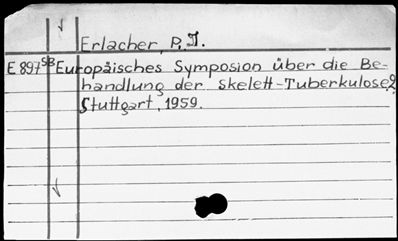 Erlacher, P. J.
E 897 SB Europäisches Symposion über die Be-
handlung der Skelett-Tuberkulose2
Stuttgart, 1959.